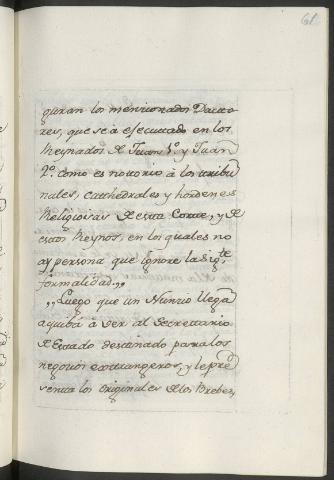 61.
guran los mencionados Dauto
res, que se à esecutado en los
Reynados de Juan 1.º y Juan
2.º como es notorio à los tribu
nales, cathedrales y hordenes
Religiosas de esta Corte, y de
estos Reynos, en los quales no
ay persona que ignore la sig.te
formalidad „
„ Luego que un Nunzio llega
aqui bà à ver al Secretario
de Estado destinado para los
negocios extrangeros, y le pre
senta los originales de los Brebes,